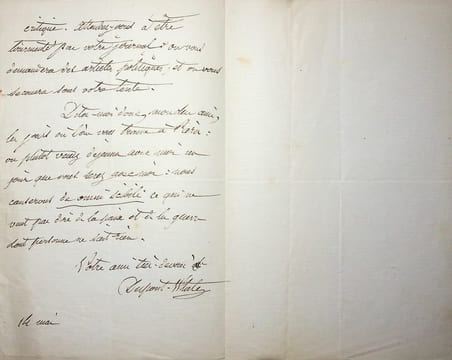 critique. Attendez-vous à être
tourmenté par votre journal : on vous
demandera des articles politiques, et on vous
sous votre tente.
Dites-moi donc, mon cher ami,
les jours où l'on vous trouve à Paris :
ou plutôt venez déjeuner avec moi un
jour que vous serez : nous
causerons de omni scibili ce qui ne
veut pas dire de la paix et de la guerre
dont personne ne sait rien.
Votre ami très-dévoué
Dupont-White
14 mai